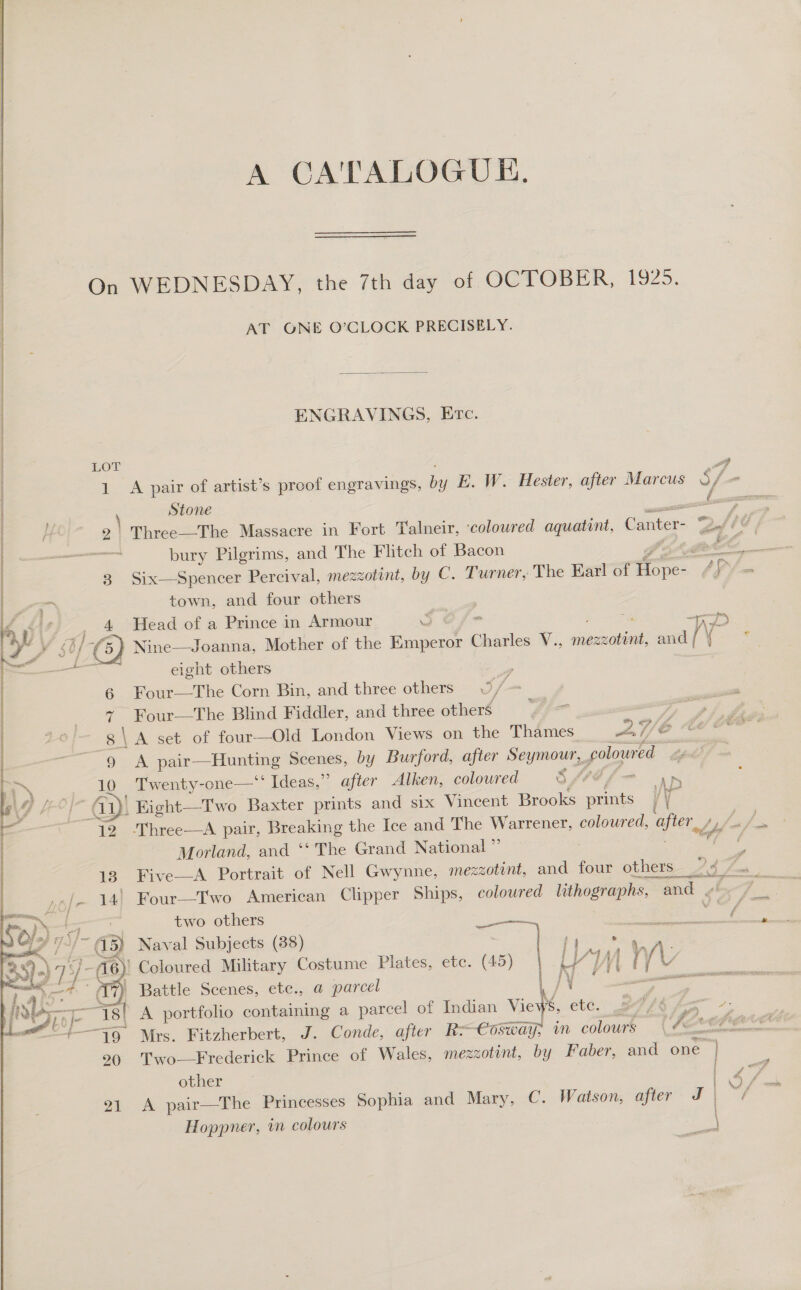 A CATALOGUE.
On WEDNESDAY, the 7th day of OCTOBER, 1925.
AT ONE O'CLOCK PRECISELY.
ENGRAVINGS, ETC.
LOT
1 A pair of artist's proof engravings, by E. W. Hester, after Marcus 5/-
Stone
2 Three—The Massacre in Fort Talneir, coloured aquatint, Canter-
bury Pilgrims, and The Flitch of Bacon
3 Six—Spencer Percival, mezzotint, by C. Turner, The Earl of Hope-
town, and four others
4 Head of a Prince in Armour
5 Nine—Joanna, Mother of the Emperor Charles V., mezzotint, and
eight others
6 Four—The Corn Bin, and three others 5/-
7 Four—The Blind Fiddler, and three others
8 A set of four—Old London Views on the Thames 27/6
9 A pair—Hunting Scenes, by Burford, after Seymour, coloured
10 Twenty-one—“Ideas,” after Alken, coloured
11 Eight—Two Baxter prints and six Vincent Brooks prints
12 Three—A pair, Breaking the Ice and The Warrener, coloured, after
Morland, and “The Grand National”
13 Five—A Portrait of Nell Gwynne, mezzotint, and four others
14 Four—Two American Clipper Ships, coloured lithographs, and
two others
15 Naval Subjects (38)
16 Coloured Military Costume Plates, etc. (45)
17 Battle Scenes, etc., a parcel
18 A portfolio containing a parcel of Indian Views, etc.
19 Mrs. Fitzherbert, J. Conde, after R. Cosway, in colours
20 Two—Frederick Prince of Wales, mezzotint, by Faber, and one
other
21 A pair—The Princesses Sophia and Mary, C. Watson, after J
Hoppner, in colours